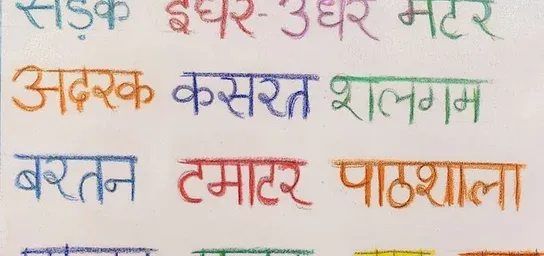 सड़क इधर-उधर मटर
अदरक कसरत शलगम
बरतन टमाटर पाठशाला